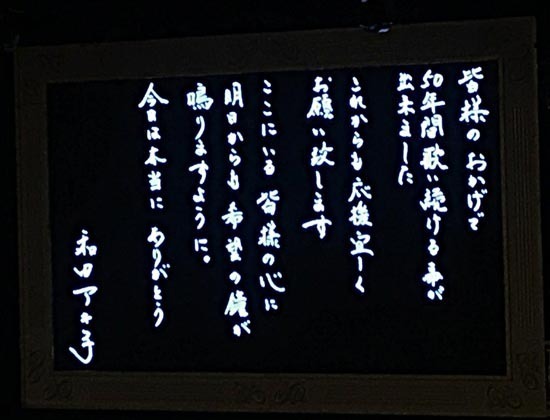 皆様のおかげで
50年間歌い続ける事が
出来ました
これからも応援宜しく
お願い致します
ここにいる皆様の心に
明日からも希望の鐘が
鳴りますように。
今日は本当にありがとう
和田アキ子